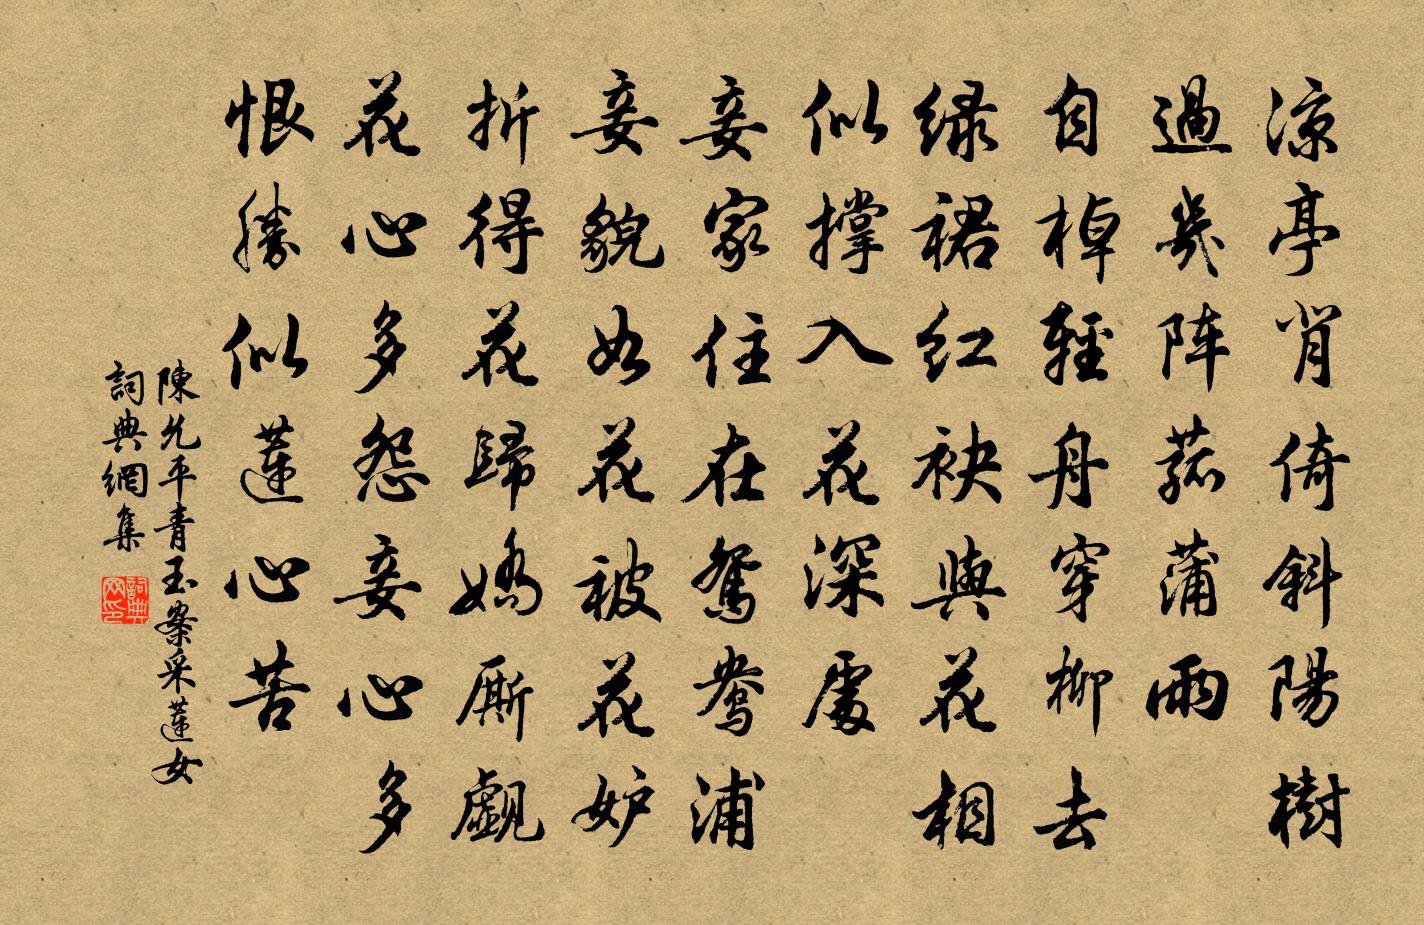 涼亭背倚斜陽樹
過幾陣菰蒲雨
自棹輕舟穿柳去
綠裙紅袂與花相
似撑入花深處
妾家住在鴛鴦浦
妾貌如花被花妒
折得花歸嬌厮覷
花心多怨妾心多
恨勝似蓮心苦
陳允平青玉案采蓮女
詞典網集